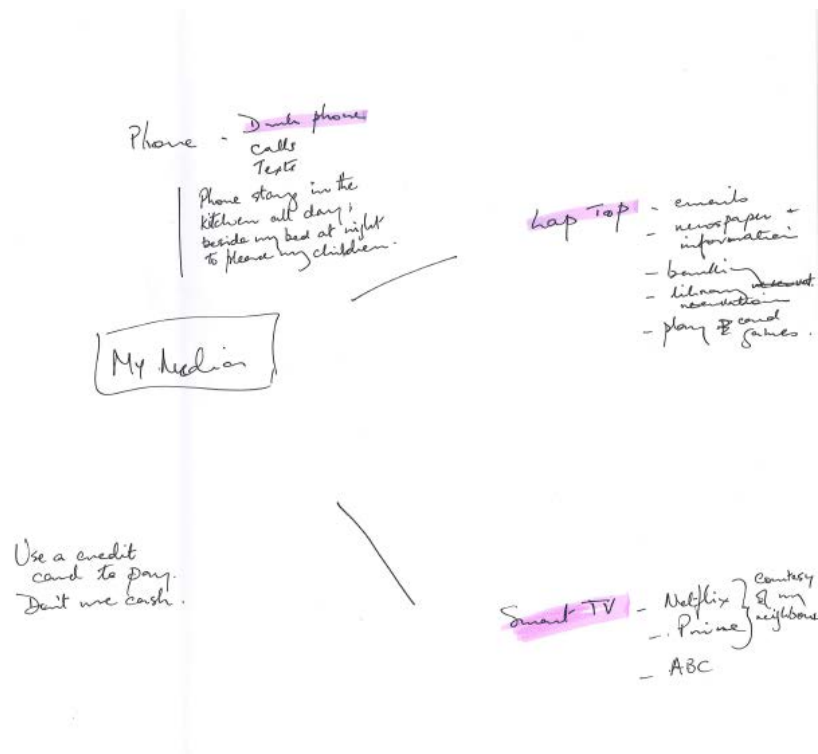 Phone - Dumb phone
calls
Texts
Phone stays in the
kitchen all day;
beside my bed at night
to please my children.
Lap Top - emails
- newspaper +
information
- banking
- library reservat.
reservation
- play card
games.
My Media
Use a credit
card to pay.
Don't use cash.
Smart TV - Netflix
- Prime
courtesy
of my
neighbour
- ABC